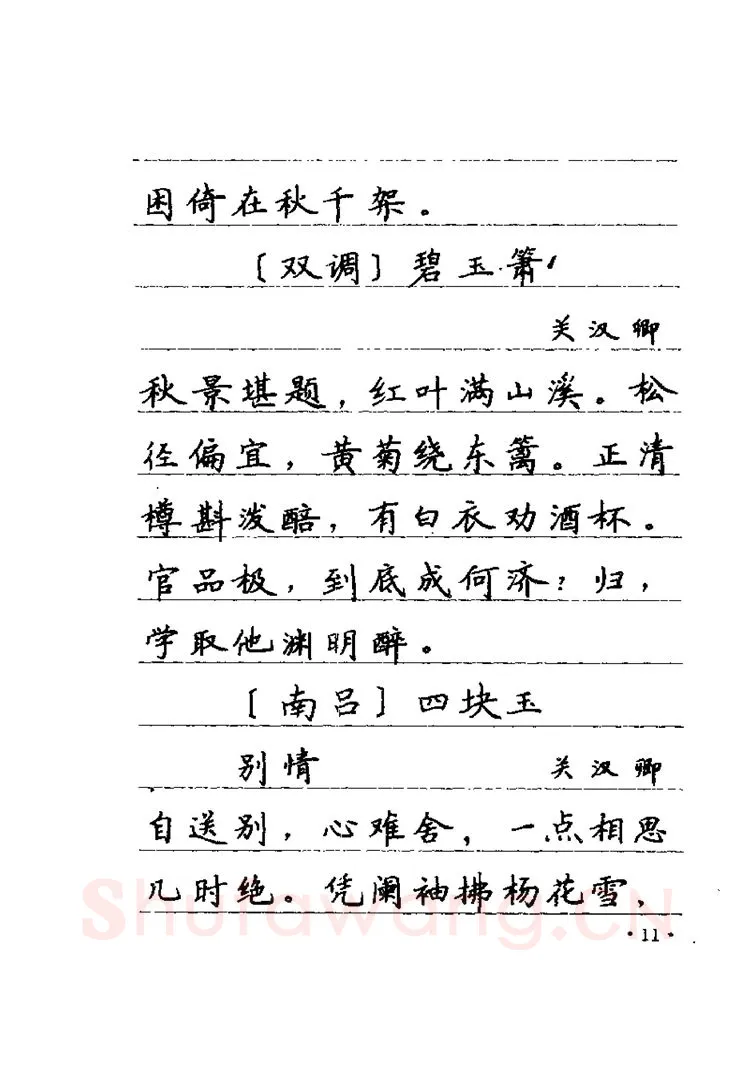 困倚在秋千架。
〔双调〕碧玉箫
关汉卿
秋景堪题，红叶满山溪。松
径偏宜，黄菊绕东篱。正清
樽斟泼醅，有白衣劝酒杯。
官品极，到底成何济？归，
学取他渊明醉。
〔南吕〕四块玉
别情 关汉卿
自送别，心难舍，一点相思
几时绝。凭阑袖拂杨花雪，
Shufawang.CN
·11·